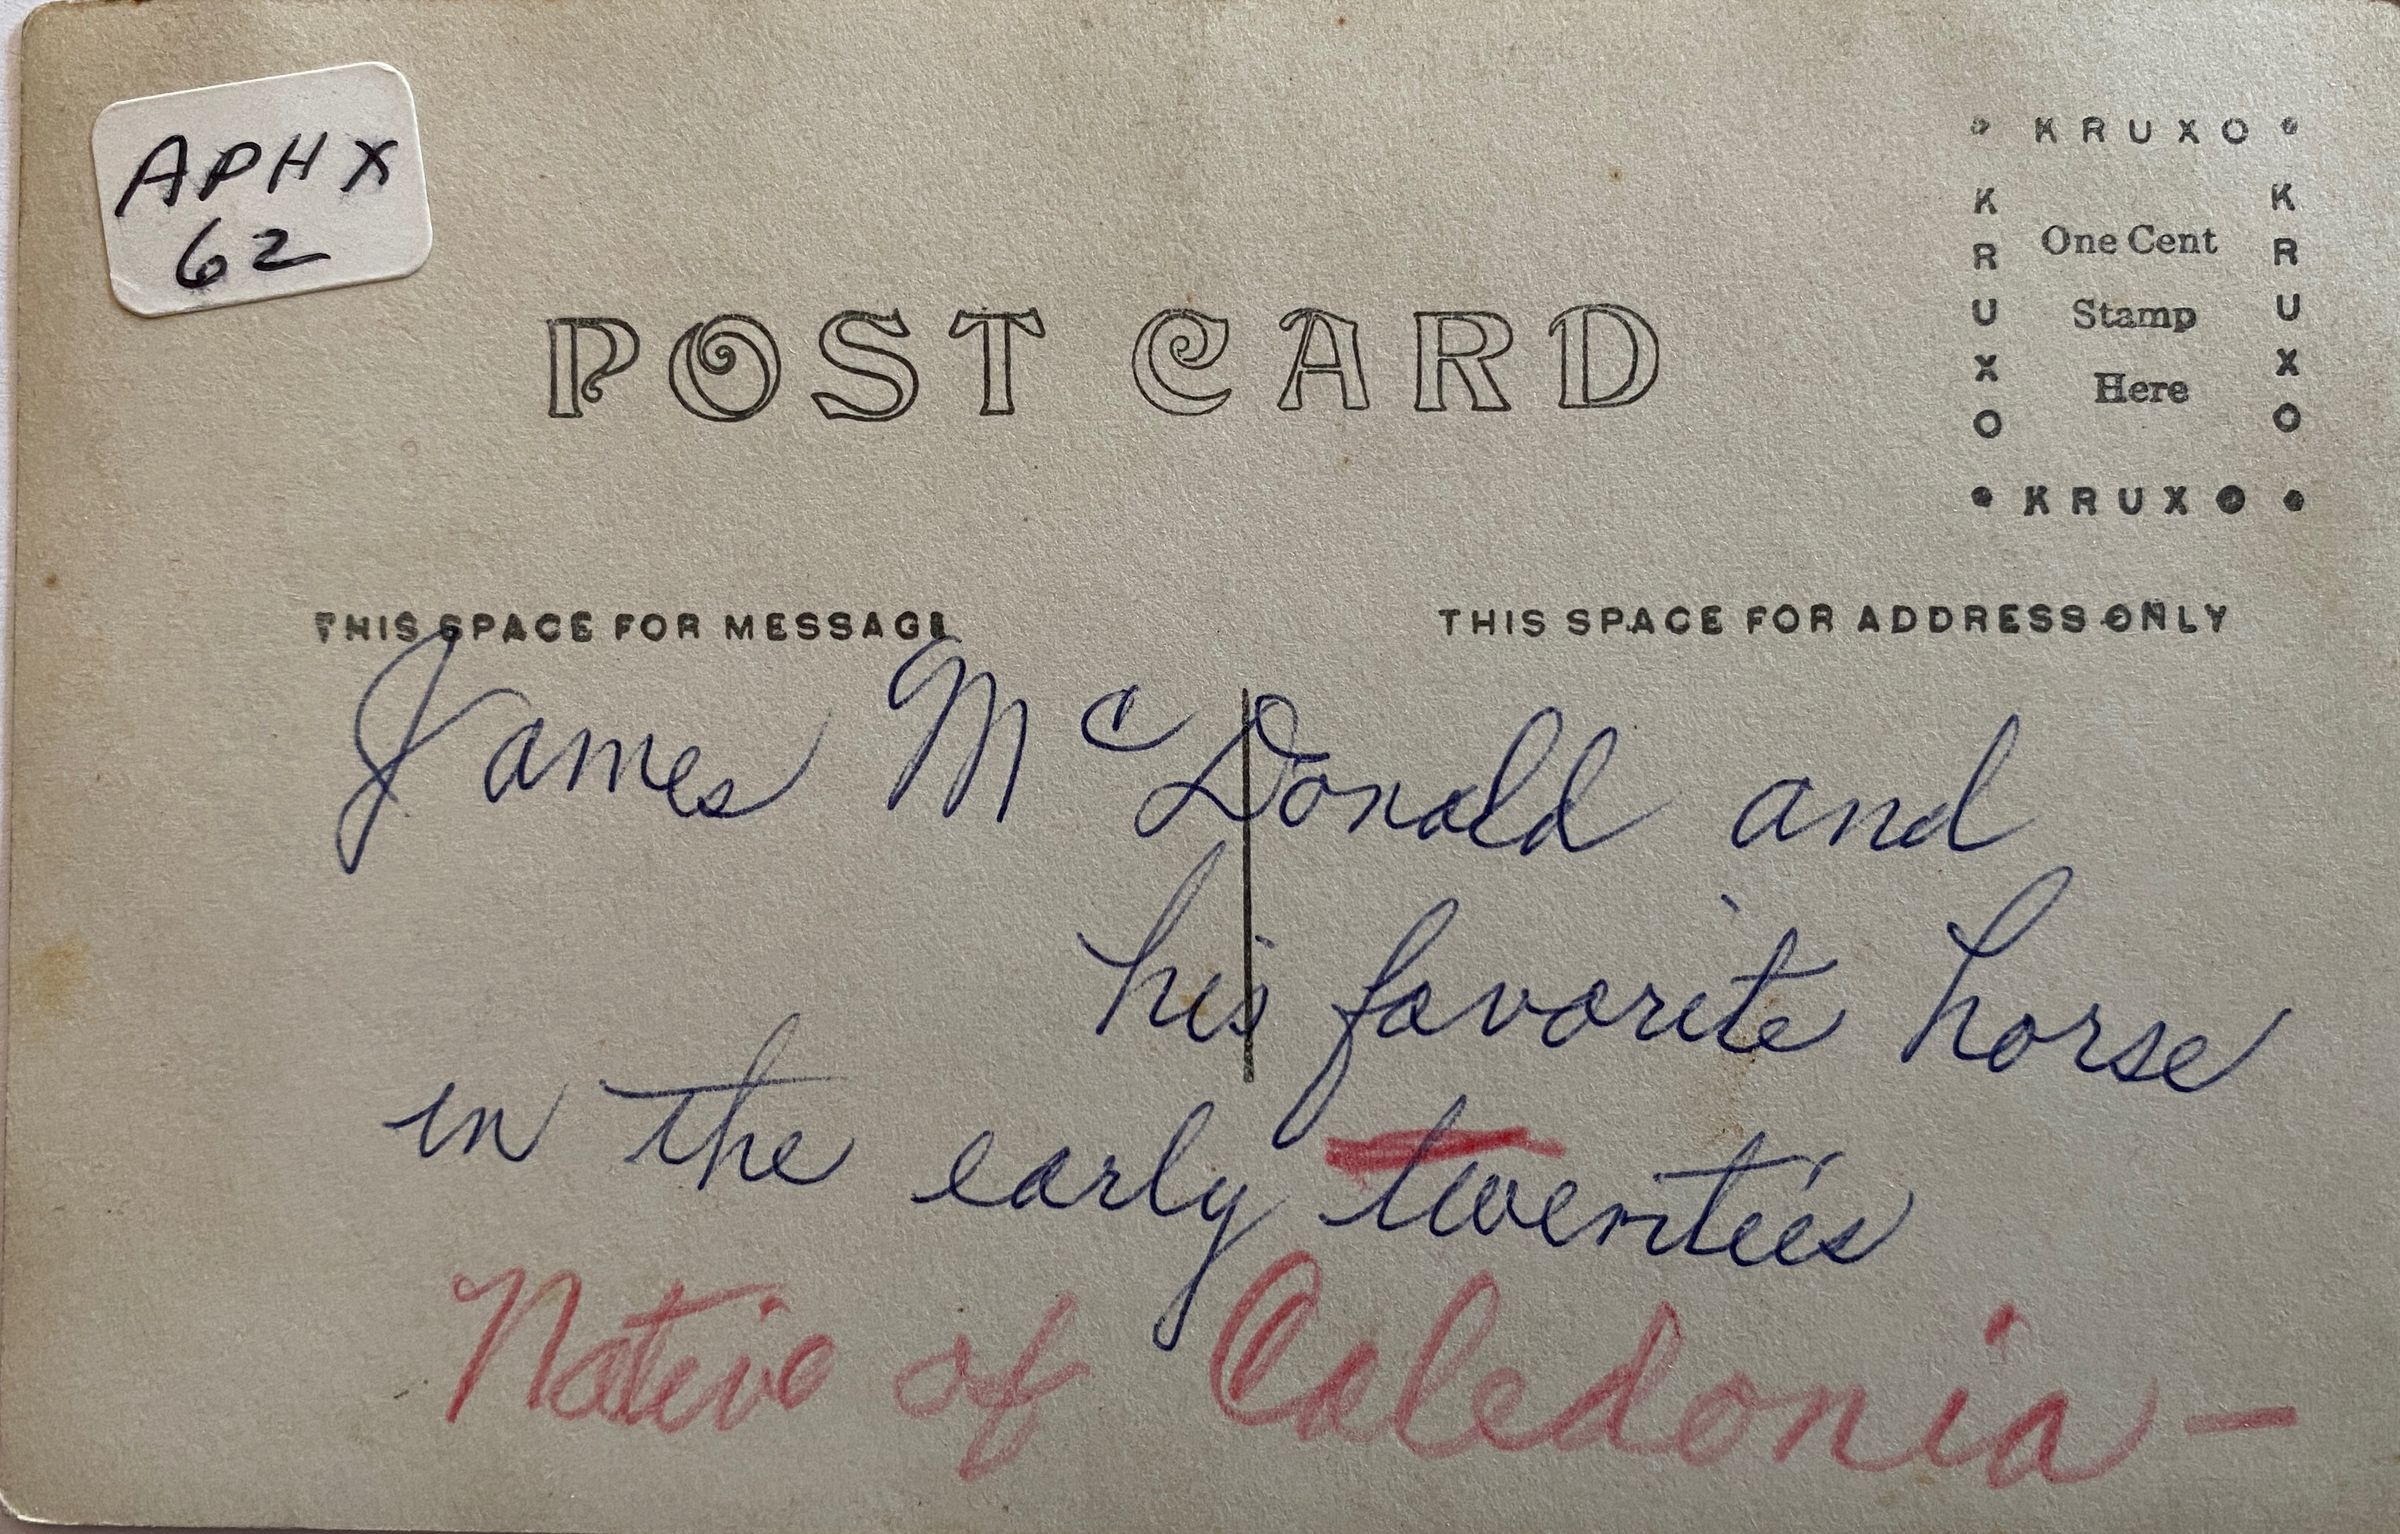 APHX
62
POST CARD
• KRUXO •
KRUXO
One Cent
Stamp
Here
KRUXO
• KRUXO •
THIS SPACE FOR MESSAGE
THIS SPACE FOR ADDRESS ONLY
James McDonald and
his favorite horse
in the early twenties
Native of Caledonia —